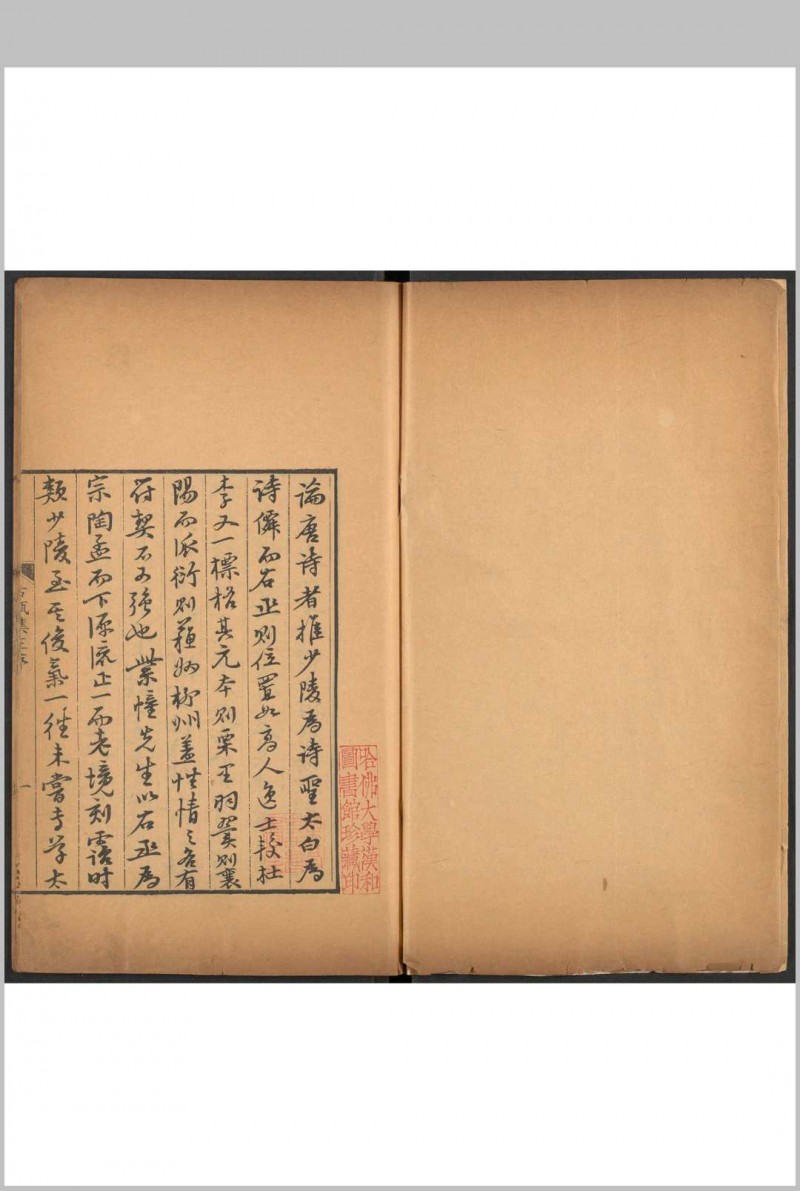 論唐詩者推少陵為詩聖太白為
詩僊而右丞則位置如高人逸士較杜
李又一標格其元本則栗里羽翼則襄
陽而派衍則蘇州柳州蓋性情之各有
符契不可強也 先生以右丞為
宗陶孟而下源流正一而老境刻露時
類少陵至其俊氣一往未嘗專學太
哈佛大學漢和
圖書館珍藏印